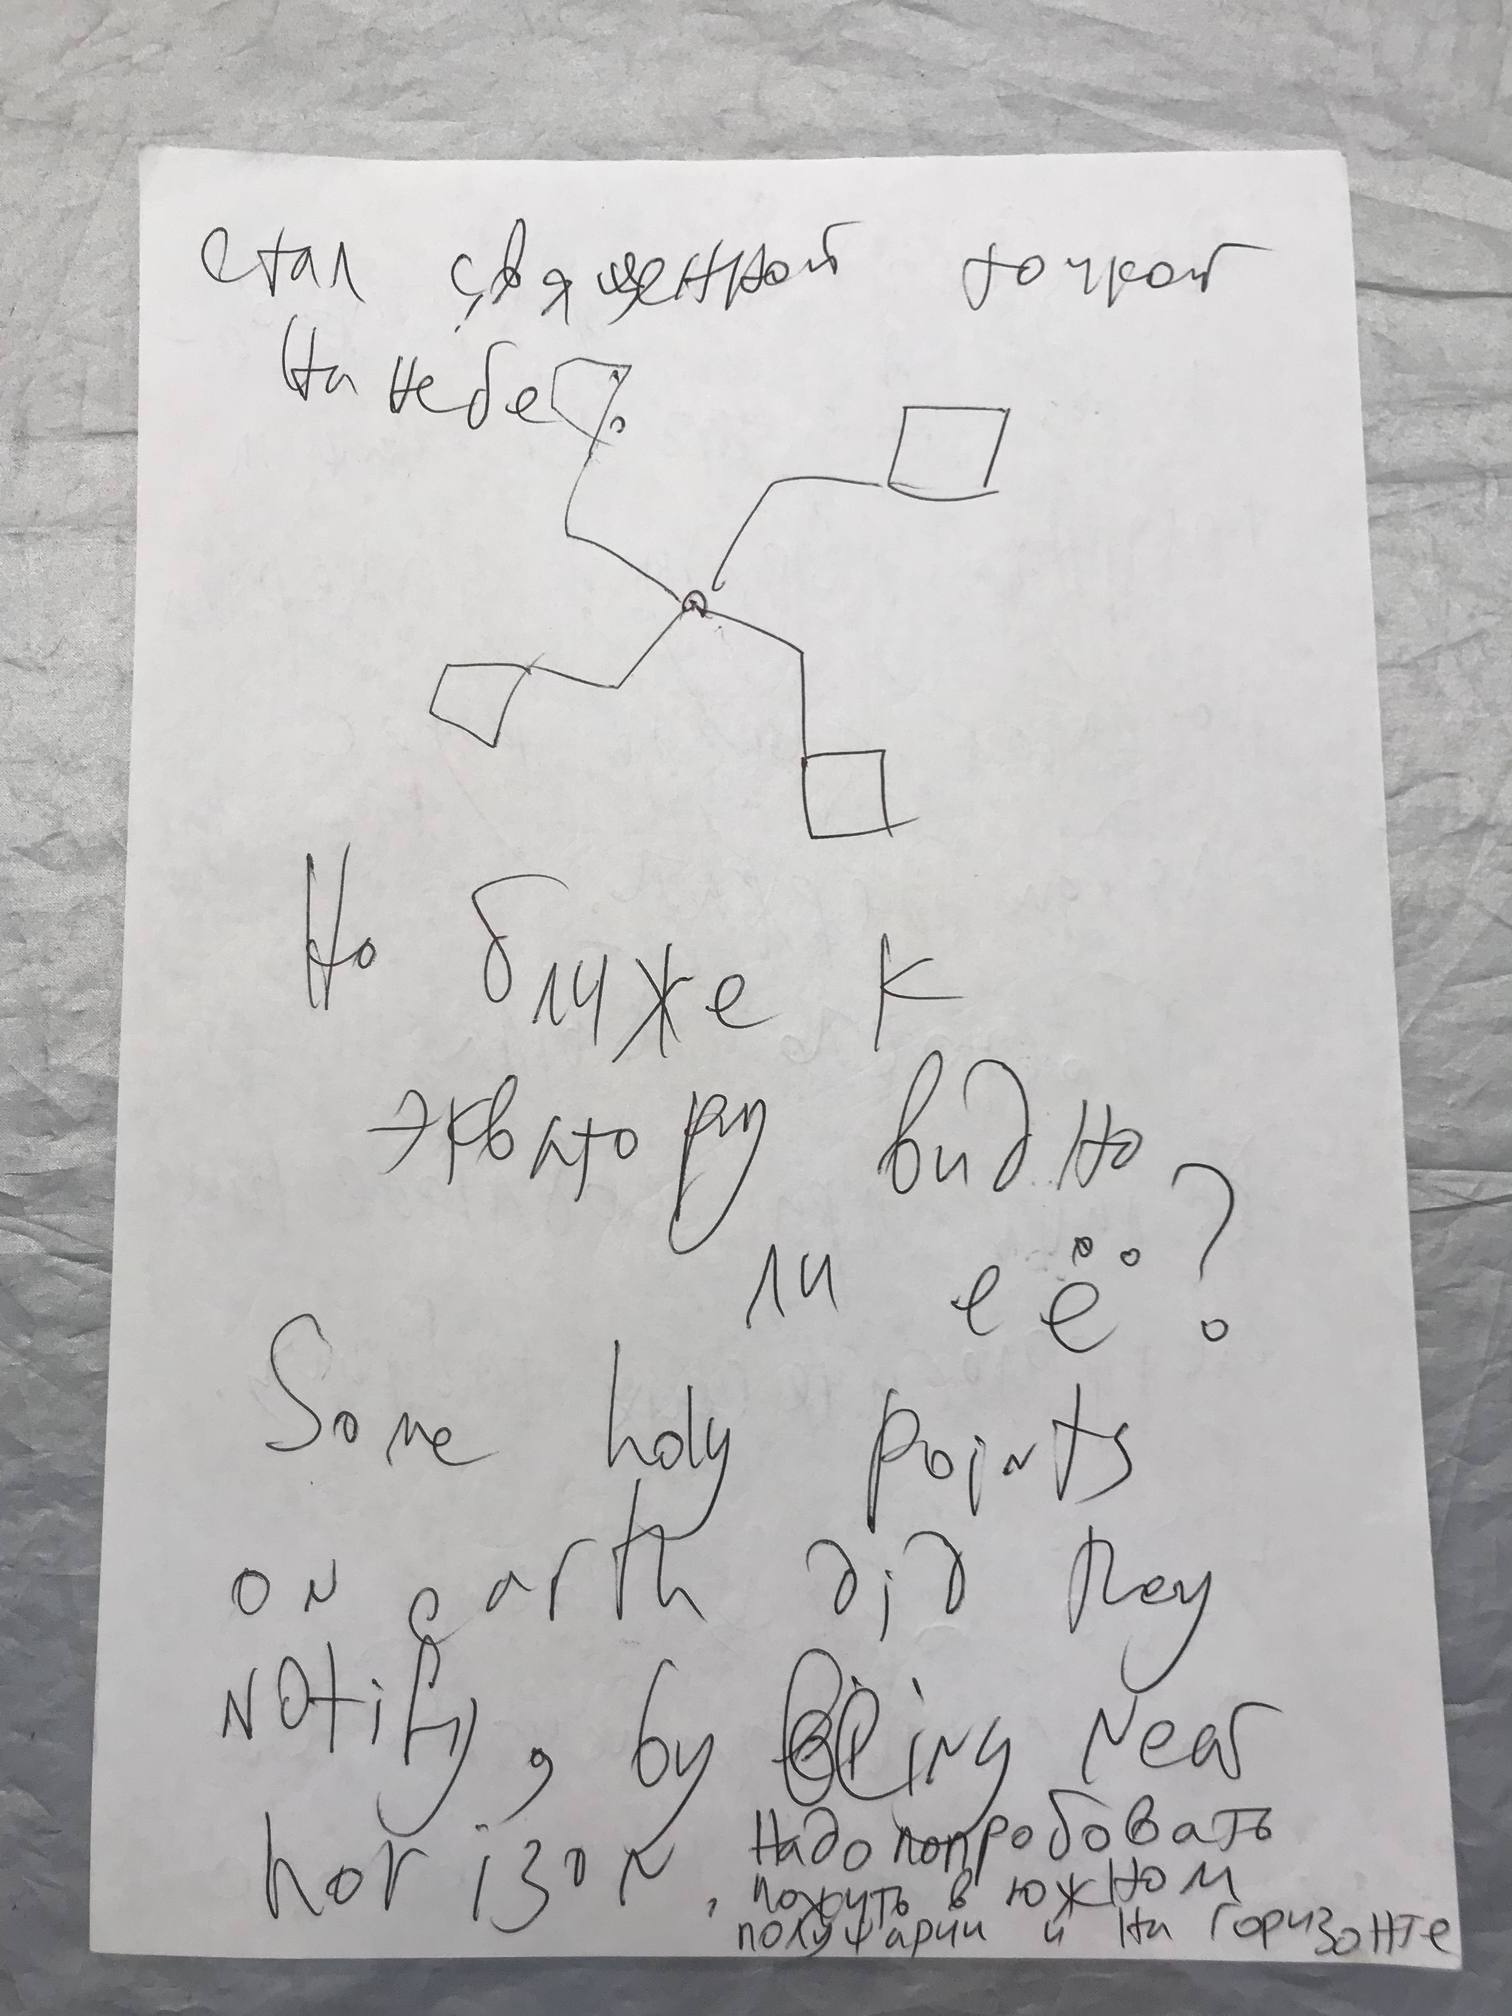 стал священной точкой
на небе
Но ближе к
экватору видно
ли её?
Some holy points
on earth did they
notify, by being near
horizon,
Надо попробовать
пожить в южном
полушарии и на горизонте